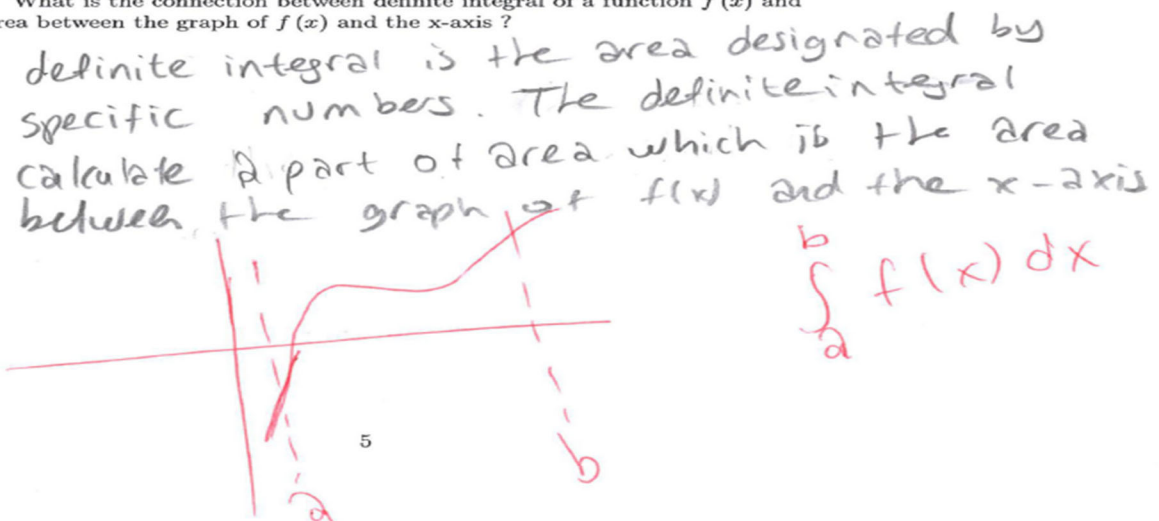 What is the connection between definite integral of a function f (x) and
rea between the graph of f (x) and the x-axis ?
definite integral is the area designated by
specific numbers. The definite integral
calculate a part of area which is the area
between the graph of f(x) and the x-axis
b
∫ f(x) dx
a
5
b
a